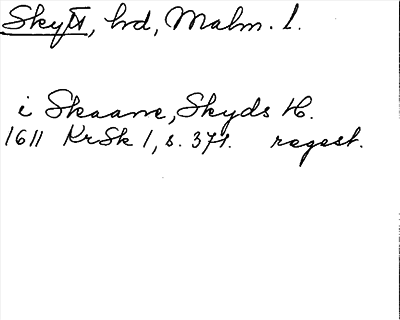 Skytt, hd, Malm. l.
i Skaane, Skyds H.
1611 KrSk 1, s. 371. regest.